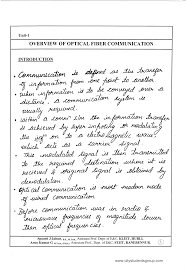 Unit-1
OVERVIEW OF OPTICAL FIBER COMMUNICATION
INTRODUCTION
• Communication is defined as the transfer
of information from one point to another
• When information is to be conveyed over a
distance, a communication system is
usually required.
• Within a comm² sys the information transfer
is achieved by super imposing or modulating
the inf on to a electromagnetic wave,
which acts as a carrier signal
• This modulated signal is then transmitted
to the required destination where it is
received & original signal is obtained by
demodulation.
• Optical communication is most modern mode
of wired communication
• Before communication was in radio &
microwave frequencies of magnitude lower
than optical frequencies.